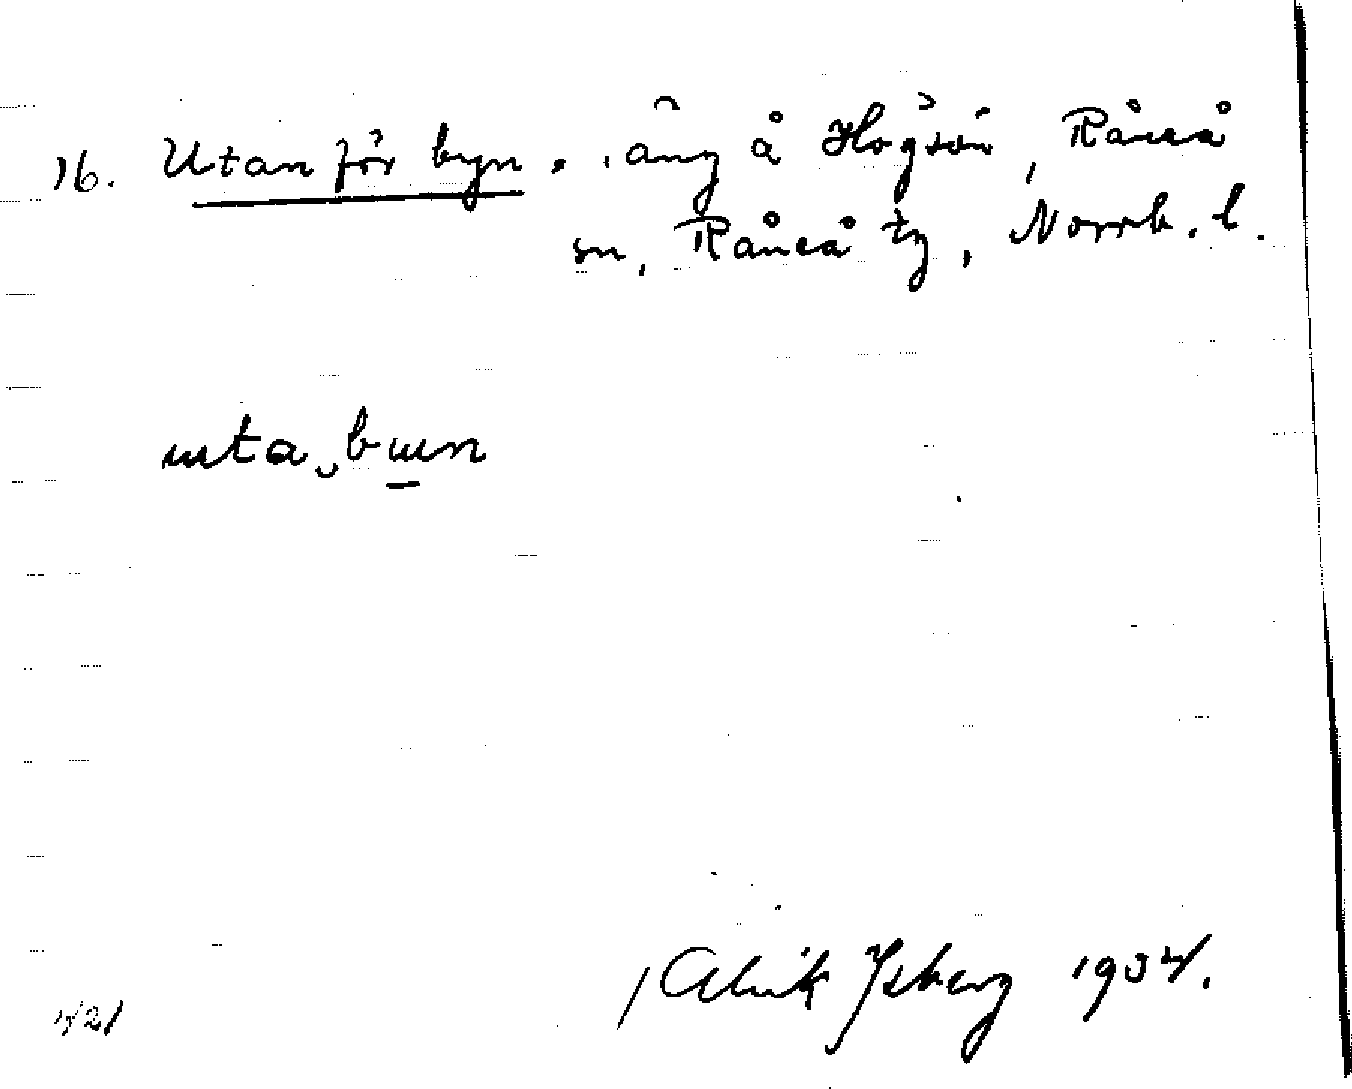 16. Utan för byn. äng å Högsön, Råneå
sn, Råneå tg, Norrb. l.
uta bun
Alrik Ysberg 1934.